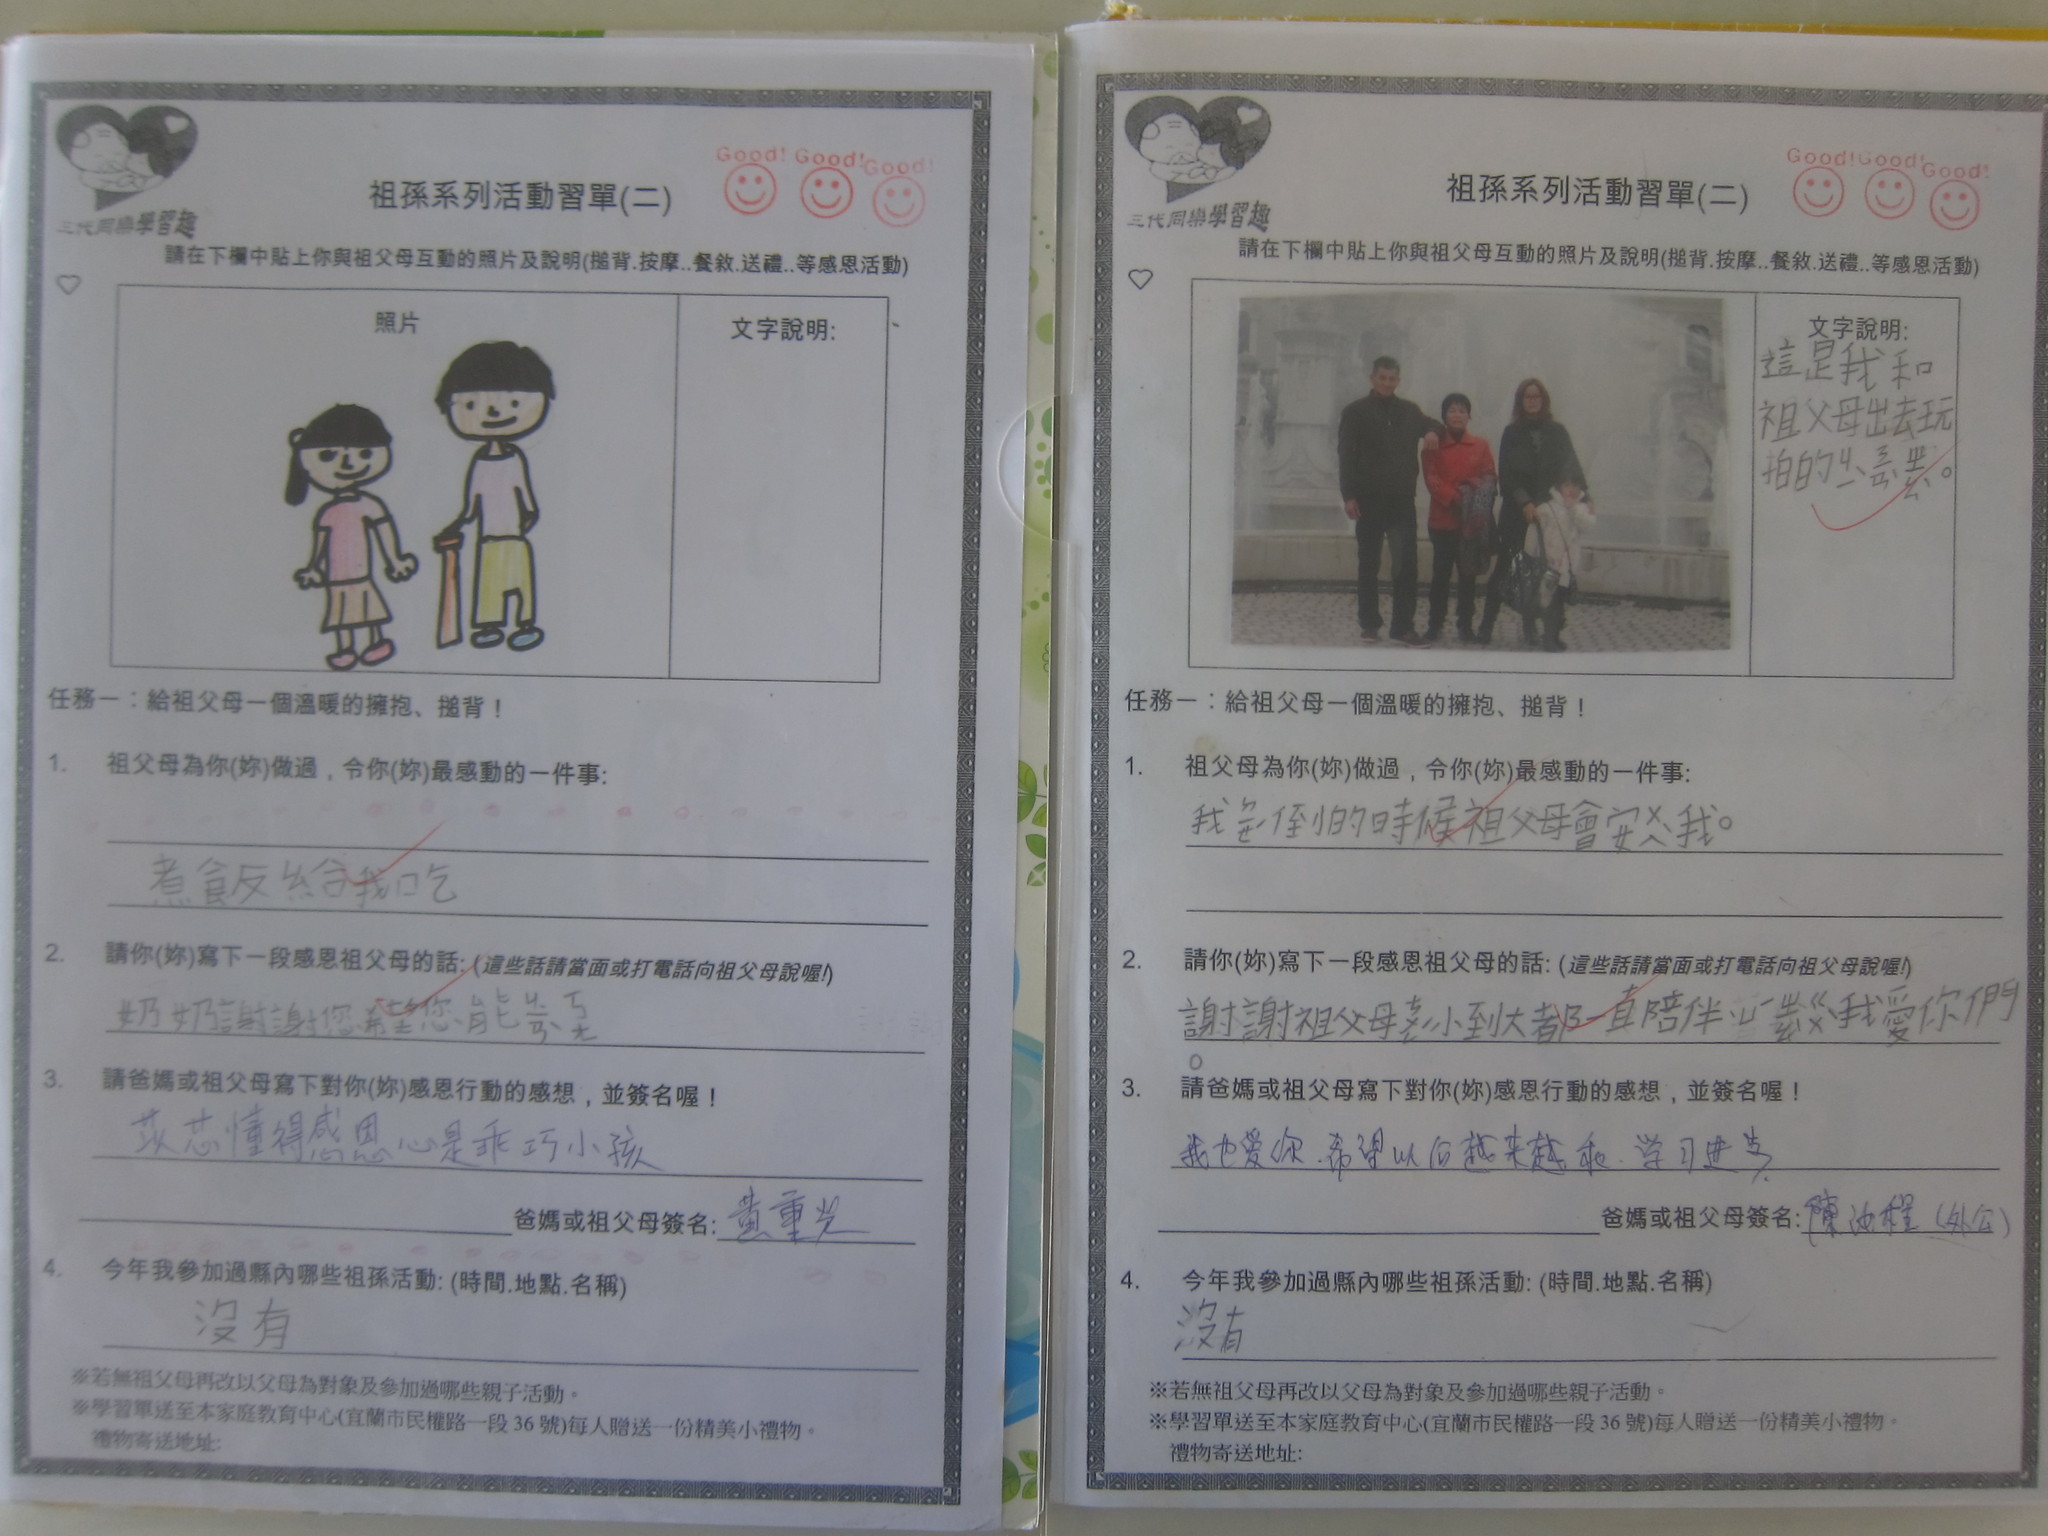 三代同樂學習趣
祖孫系列活動習單(二)
Good! Good! Good!
請在下欄中貼上你與祖父母互動的照片及說明(搥背.按摩..餐敘.送禮..等感恩活動)
照片
文字說明:
任務一：給祖父母一個溫暖的擁抱、搥背！
1. 祖父母為你(妳)做過，令你(妳)最感動的一件事:
煮飯給我吃
2. 請你(妳)寫下一段感恩祖父母的話: (這些話請當面或打電話向祖父母說喔!)
奶奶謝謝您希望您能
3. 請爸媽或祖父母寫下對你(妳)感恩行動的感想，並簽名喔！
芯懂得感恩心是乖巧小孩
爸媽或祖父母簽名: 黃重光
4. 今年我參加過縣內哪些祖孫活動: (時間.地點.名稱)
沒有
※若無祖父母再改以父母為對象及參加過哪些親子活動。
※學習單送至本家庭教育中心(宜蘭市民權路一段 36 號)每人贈送一份精美小禮物。
禮物寄送地址:
三代同樂學習趣
祖孫系列活動習單(二)
Good! Good! Good!
請在下欄中貼上你與祖父母互動的照片及說明(搥背.按摩..餐敘.送禮..等感恩活動)
文字說明:
這是我和
祖父母出去玩
拍的
任務一：給祖父母一個溫暖的擁抱、搥背！
1. 祖父母為你(妳)做過，令你(妳)最感動的一件事:
我 怕的時候祖父母會安ㄨㄟ我。
2. 請你(妳)寫下一段感恩祖父母的話: (這些話請當面或打電話向祖父母說喔!)
謝謝祖父母 小到大都一直陪伴 我愛你們
。
3. 請爸媽或祖父母寫下對你(妳)感恩行動的感想，並簽名喔！
我也愛你.希望以后越来越乖.学习进步
爸媽或祖父母簽名: 陳 程 (外公)
4. 今年我參加過縣內哪些祖孫活動: (時間.地點.名稱)
沒有
※若無祖父母再改以父母為對象及參加過哪些親子活動。
※學習單送至本家庭教育中心(宜蘭市民權路一段 36 號)每人贈送一份精美小禮物。
禮物寄送地址: